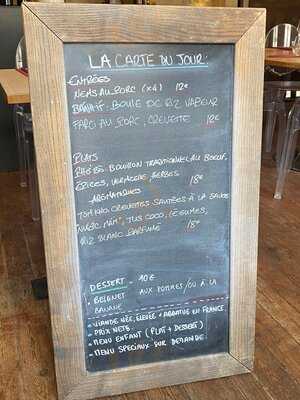 LA CARTE DU JOUR:
ENTRÉES
NEMS AU PORC (x4) 12€
BOULE DE RIZ VAPEUR
FARCI AU PORC, CREVETTE 12€
PLATS
BOUILLON TRADITIONNEL AU BOEUF,
ÉPICES, VERMICELLE, HERBES
AROMATIQUES 18€
CREVETTES SAUTÉES À LA SAUCE
COCO, LÉGUMES,
RIZ BLANC PARFUMÉ 18€
DESSERT - 10€
• BEIGNET AUX POMMES / OU À LA
BANANE
• VIANDE NÉE, ÉLEVÉE + ABATTUE EN FRANCE.
• PRIX NETS.
• MENU ENFANT (PLAT + DESSERT)
• MENU SPECIAUX SUR DEMANDE.